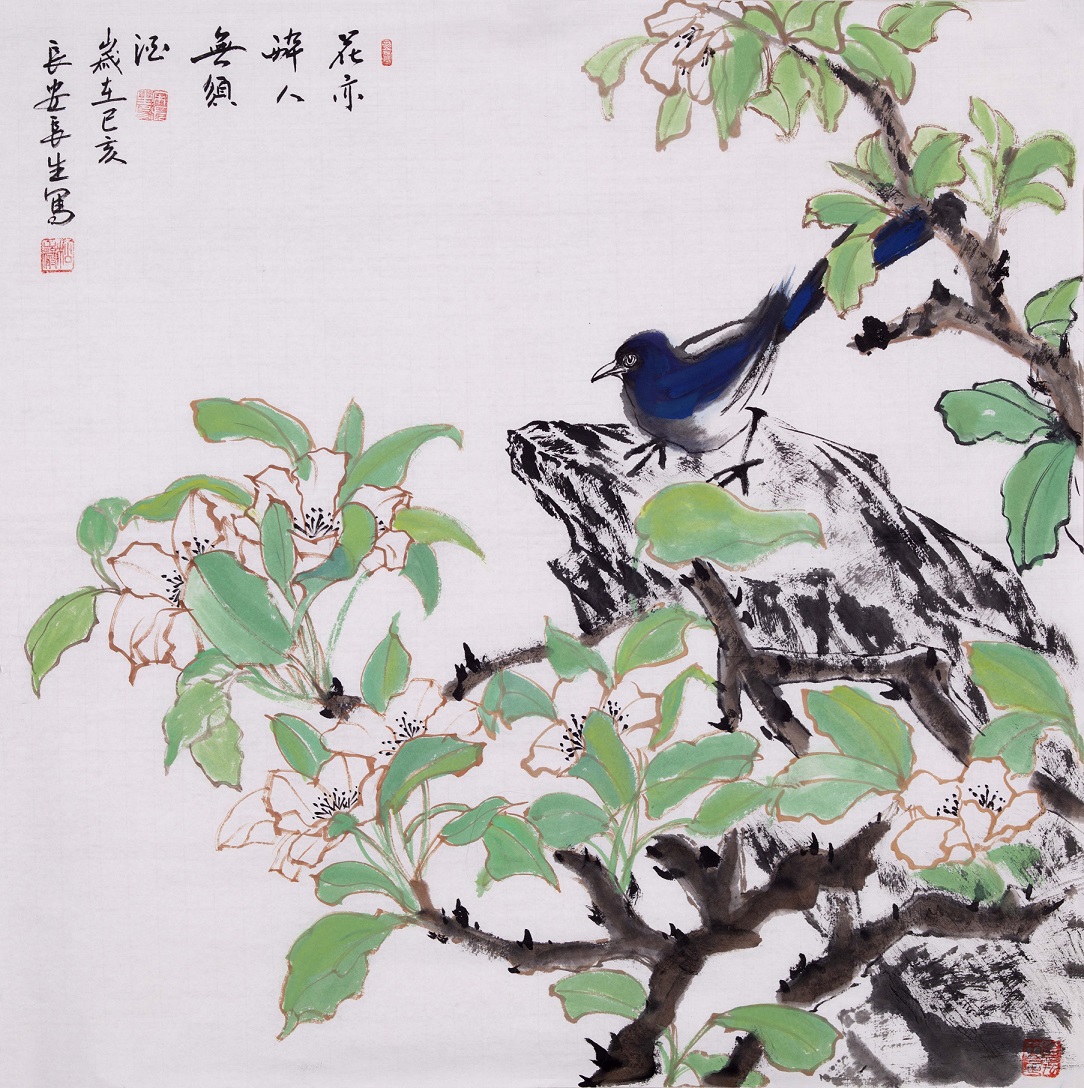 花亦
醉人
無須
酒
歲在己亥
長安長生寫